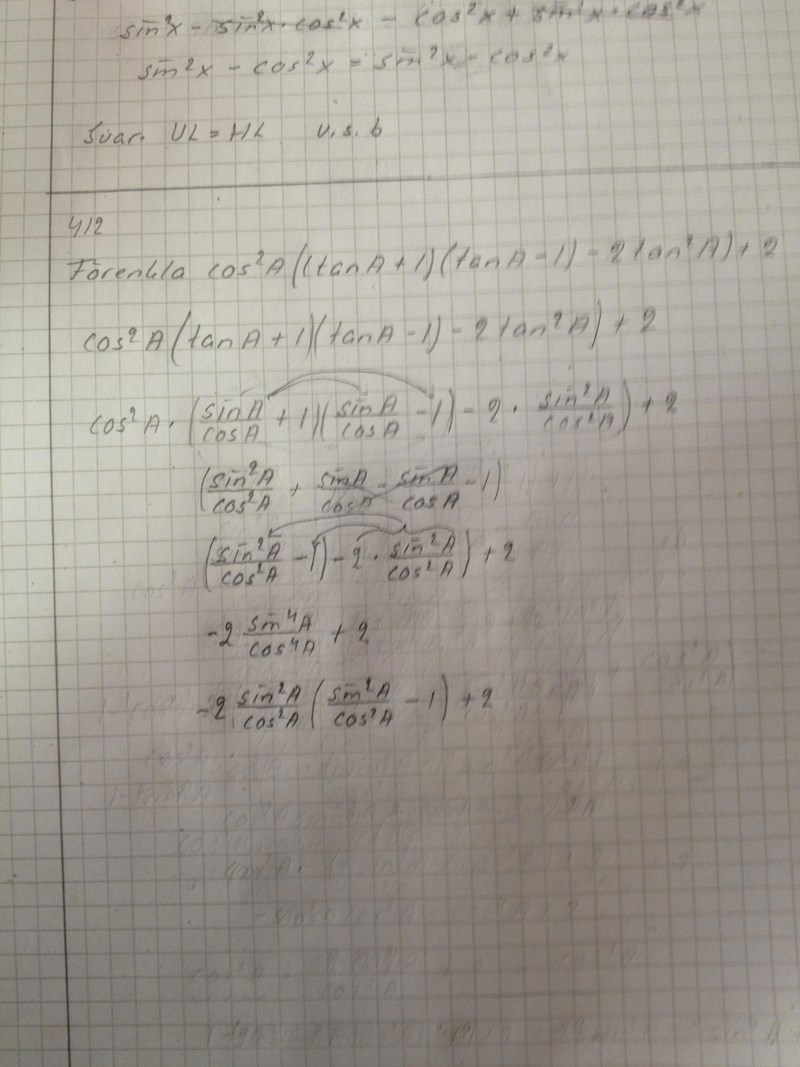 sin²x - sin²x · cos²x - cos²x + sin²x · cos²x
sin²x - cos²x = sin²x - cos²x
Svar. VL = HL v.s.b
412
Förenkla cos²A((tanA+1)(tanA-1) - 2tan²A)+2
cos²A(tanA+1)(tanA-1) - 2tan²A)+2
cos²A · (sinA/cosA + 1)(sinA/cosA - 1) - 2 · sin²A/cos²A) + 2
(sin²A/cos²A + sinA/cosA - sinA/cosA - 1)
(sin²A/cos²A - 1) - 2 · sin²A/cos²A) + 2
-2 sin⁴A/cos⁴A + 2
-2 sin²A/cos²A (sin²A/cos²A - 1) + 2